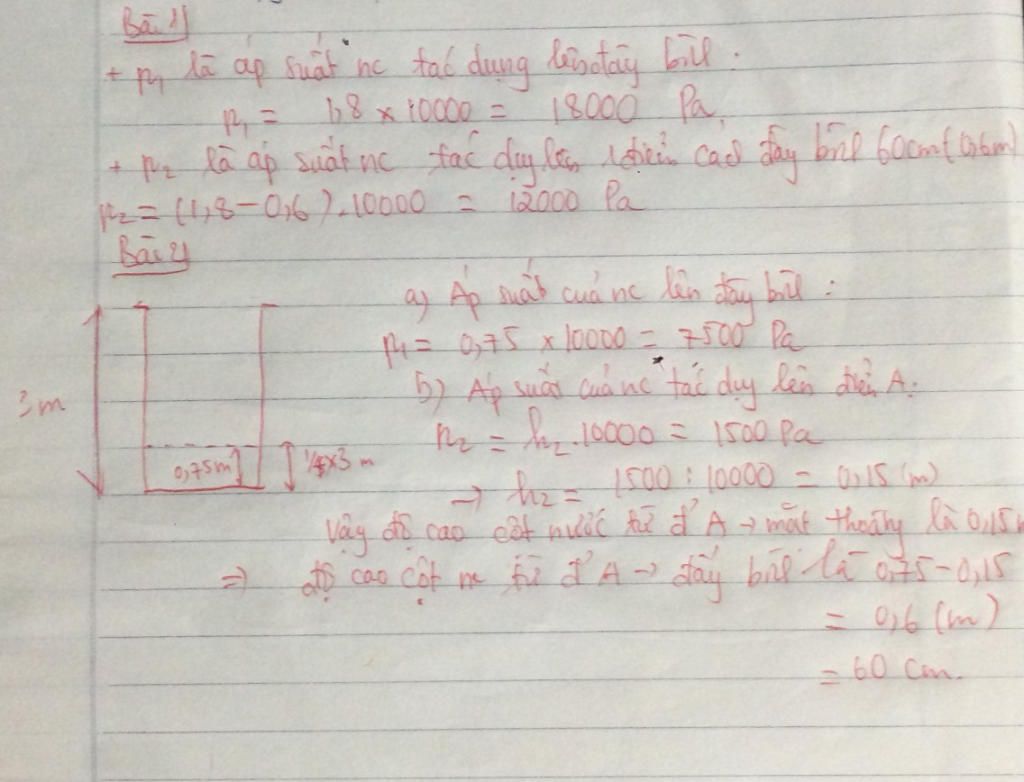 Bài 1)
+ p₁ là áp suất nc tác dụng lên đáy bình.
p₁ = 1,8 × 10000 = 18000 Pa.
+ p₂ là áp suất nc tác dụng lên điểm cách đáy bình 60cm (0,6m)
p₂ = (1,8 - 0,6).10000 = 12000 Pa
Bài 2)
a) Áp suất của nc lên đáy bình :
p₁ = 0,75 × 10000 = 7500 Pa
b) Áp suất của nc tác dụng lên điểm A.
3 m
p₂ = h₂.10000 = 1500 Pa
0,75m
×3 m
→ h₂ = 1500 : 10000 = 0,15 (m)
Vậy độ cao cột nước từ đ' A → mặt thoáng là 0,15
⇒ độ cao cột nc từ đ' A → đáy bình là 0,75 - 0,15
= 0,6 (m)
= 60 cm.